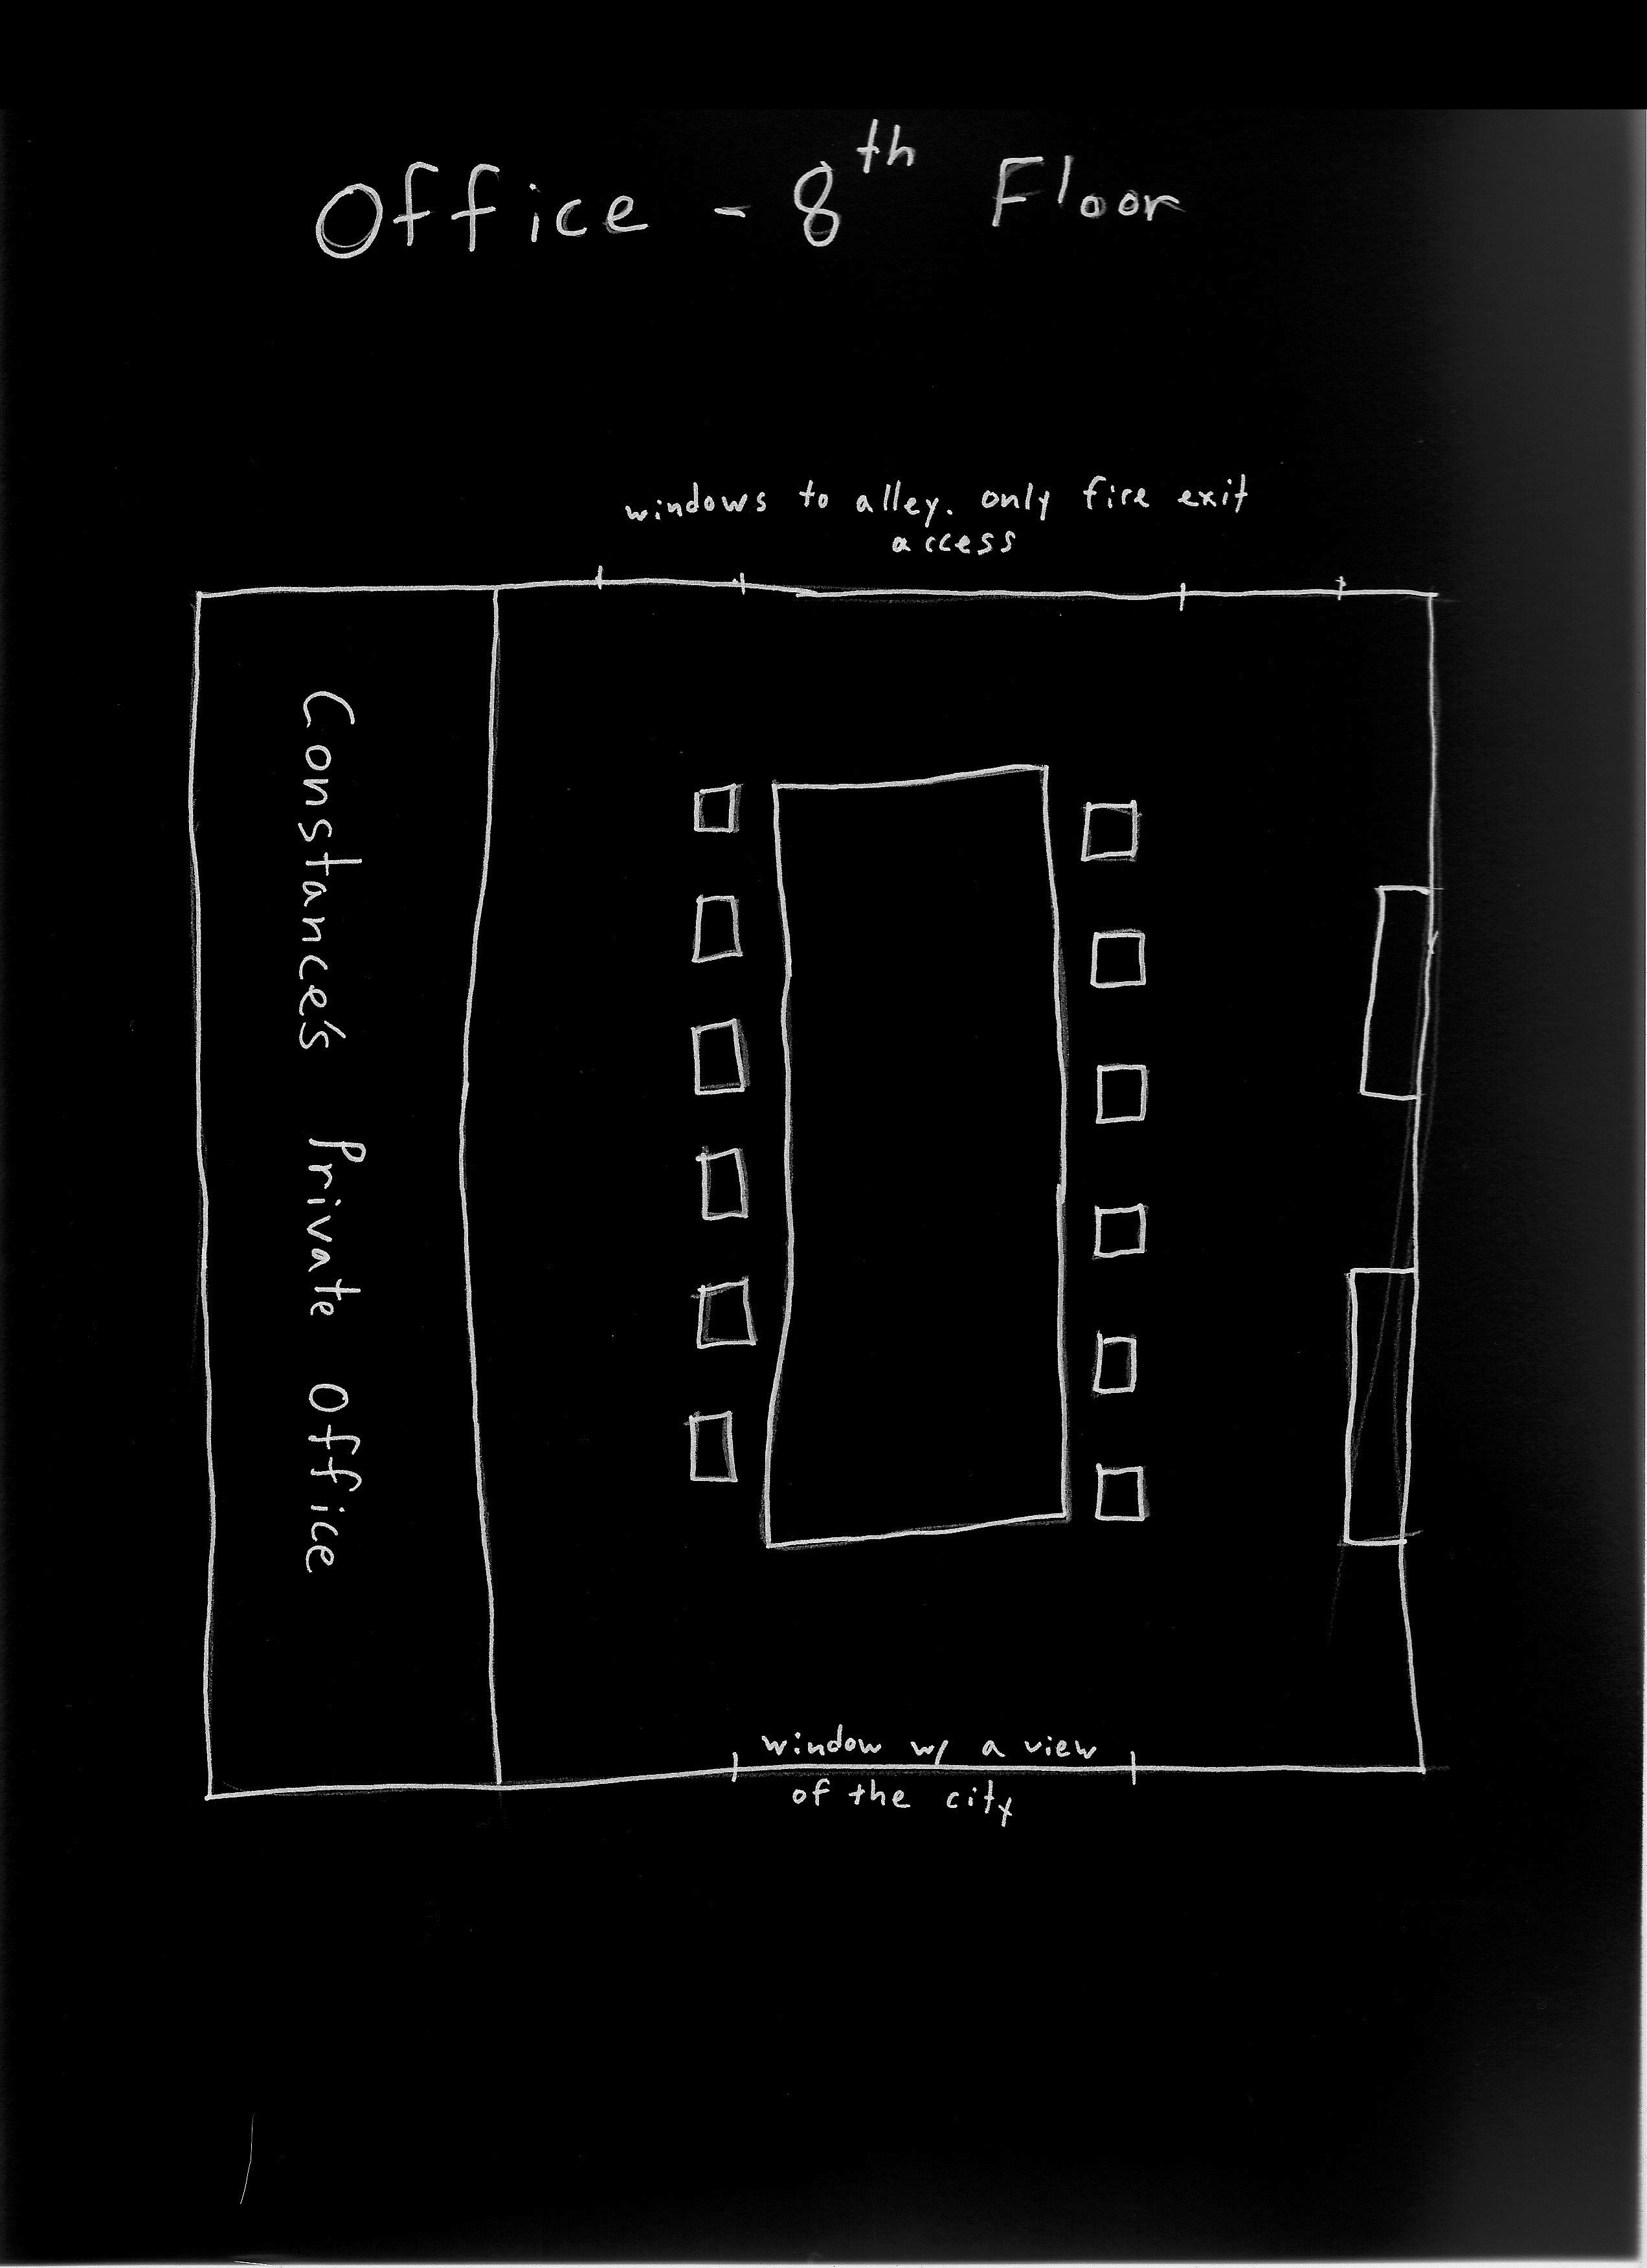 Office - 8th Floor
windows to alley. only fire exit
access
Constance's Private Office
window w/ a view
of the city